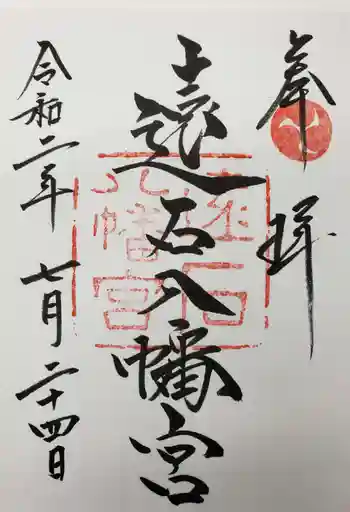 奉拝
遠石八幡宮
令和二年七月二十四日
遠石
八幡宮